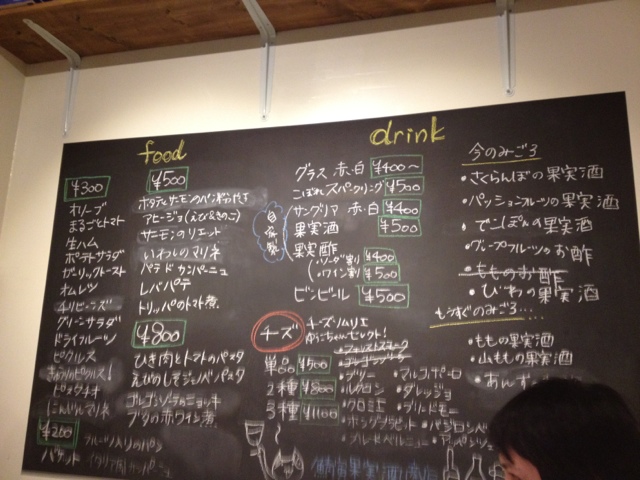 food
¥300
オリーブ
まるごとトマト
生ハム
ポテトサラダ
ガーリックトースト
オムレツ
チリビーンズ
グリーンサラダ
ドライフルーツ
ピクルス
ピスタチオ
にんじんマリネ
¥200
バケット
フルーツ入りのパン
¥500
アヒージョ(えび&きのこ)
サーモンのリエット
いわしのマリネ
パテドカンパーニュ
レバパテ
トリッパのトマト煮
¥800
ひき肉とトマトのパスタ
えびのしそジェノベパスタ
ゴルゴンゾーラのニョッキ
ブタの赤ワイン煮
drink
グラス 赤・白 ¥400〜
こぼれスパークリング ¥500
自家製
サングリア 赤・白 ¥400
果実酒 ¥500
果実酢
(ソーダ割り ¥400
ワイン割り) ¥500
ビンビール ¥500
チーズ
チーズソムリエ
ゆうこちゃんセレクト!
単品 ¥500
2種 ¥800
3種 ¥1100
・ブリー
・ルクロン
・クロミエ
・マルコポーロ
・ダレッジョ
・ブルドモー
今のみごろ
・さくらんぼの果実酒
・パッションフルーツの果実酒
・でこぽんの果実酒
・グレープフルーツのお酢
・もものお酢
・びわの果実酒
もうすぐのみごろ...
・ももの果実酒
・山ももの果実酒
・あんず